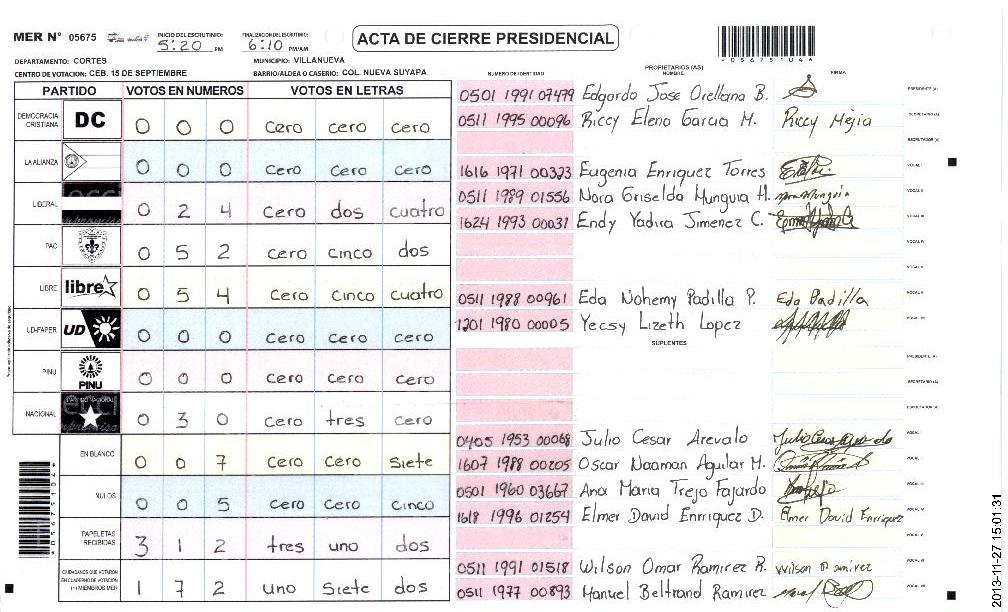 MER N° 05675
INICIO DEL ESCRUTINIO: 5:20 PM
FINALIZACION DEL ESCRUTINIO: 6:10 PM/AM
ACTA DE CIERRE PRESIDENCIAL
*056751044*
DEPARTAMENTO: CORTES
MUNICIPIO: VILLANUEVA
CENTRO DE VOTACION: CEB. 15 DE SEPTIEMBRE
BARRIO/ALDEA O CASERIO: COL. NUEVA SUYAPA
PARTIDO VOTOS EN NUMEROS VOTOS EN LETRAS
DEMOCRACIA CRISTIANA DC 0 0 0 cero cero cero
LA ALIANZA 0 0 0 cero cero cero
LIBERAL 0 2 4 cero dos cuatro
PAC 0 5 2 cero cinco dos
LIBRE libre 0 5 4 cero cinco cuatro
UD-FAPER UD 0 0 0 cero cero cero
PINU PINU 0 0 0 cero cero cero
NACIONAL 0 3 0 cero tres cero
EN BLANCO 0 0 7 cero cero siete
NULOS 0 0 5 cero cero cinco
PAPELETAS RECIBIDAS 3 1 2 tres uno dos
CIUDADANOS QUE VOTARON EN CUADERNO DE VOTACION (+) MIEMBROS MER 1 7 2 uno siete dos
NUMERO DE IDENTIDAD PROPIETARIOS (AS) NOMBRE FIRMA
0501 1991 07479 Edgardo Jose Orellana B. PRESIDENTE (A)
0511 1995 00096 Riccy Elena Garcia M. Riccy Mejia SECRETARIO (A)
ESCRUTADOR (A)
1616 1971 00323 Eugenia Enriquez Torres VOCAL I
0511 1989 01556 Nora Griselda Munguia H. Nora Munguia VOCAL II
1624 1993 00031 Endy Yadira Jimenez C. VOCAL III
VOCAL IV
VOCAL V
0511 1988 00961 Eda Nohemy Padilla P. Eda Padilla VOCAL VI
1201 1980 00005 Yecsy Lizeth Lopez VOCAL VII
SUPLENTES
PRESIDENTE (A)
SECRETARIO (A)
ESCRUTADOR (A)
0405 1953 00068 Julio Cesar Arevalo VOCAL I
1607 1988 00205 Oscar Naaman Aguilar M.
0501 1960 03667 Ana Maria Trejo Fajardo VOCAL III
1618 1996 01254 Elmer David Enrriquez D. Elmer David Enrriquez
VOCAL V
0511 1991 01518 Wilson Omar Ramirez R. Wilson O Ramirez VOCAL VI
0511 1977 00893 Manuel Beltrand Ramirez VOCAL VII
*056751044*
2013-11-27 15:01:31